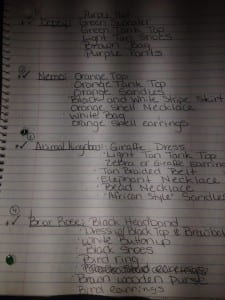 Purple Hat
Green Sweater
Green Tank Top
Light Tan Shoes
Brown Bag
Purple Pants
Nemo: Orange Top
Orange Tank Top
Orange Sandles
Black and White Stripe Skirt
Orange Shell Necklace
White Bag
Orange Shell earrings
Animal Kingdom: Giraffe Dress
Light Tan Tank Top
Zebra or Giraffe Earrings
Tan Braided Belt
Elephant Necklace
Bead Necklace
"African Style" Sandles
4
Briar Rose: Black Headband
Dress w/ Black Top &
White Button up
Black Shoes
Bird ring
Brown wooden purse
Bird Earrings